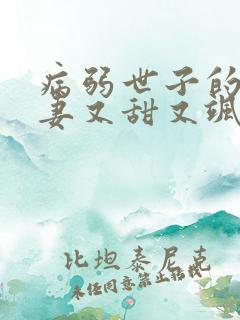 病弱世子的
妻又甜又飒
比坦泰尼克
未任同意禁止转载